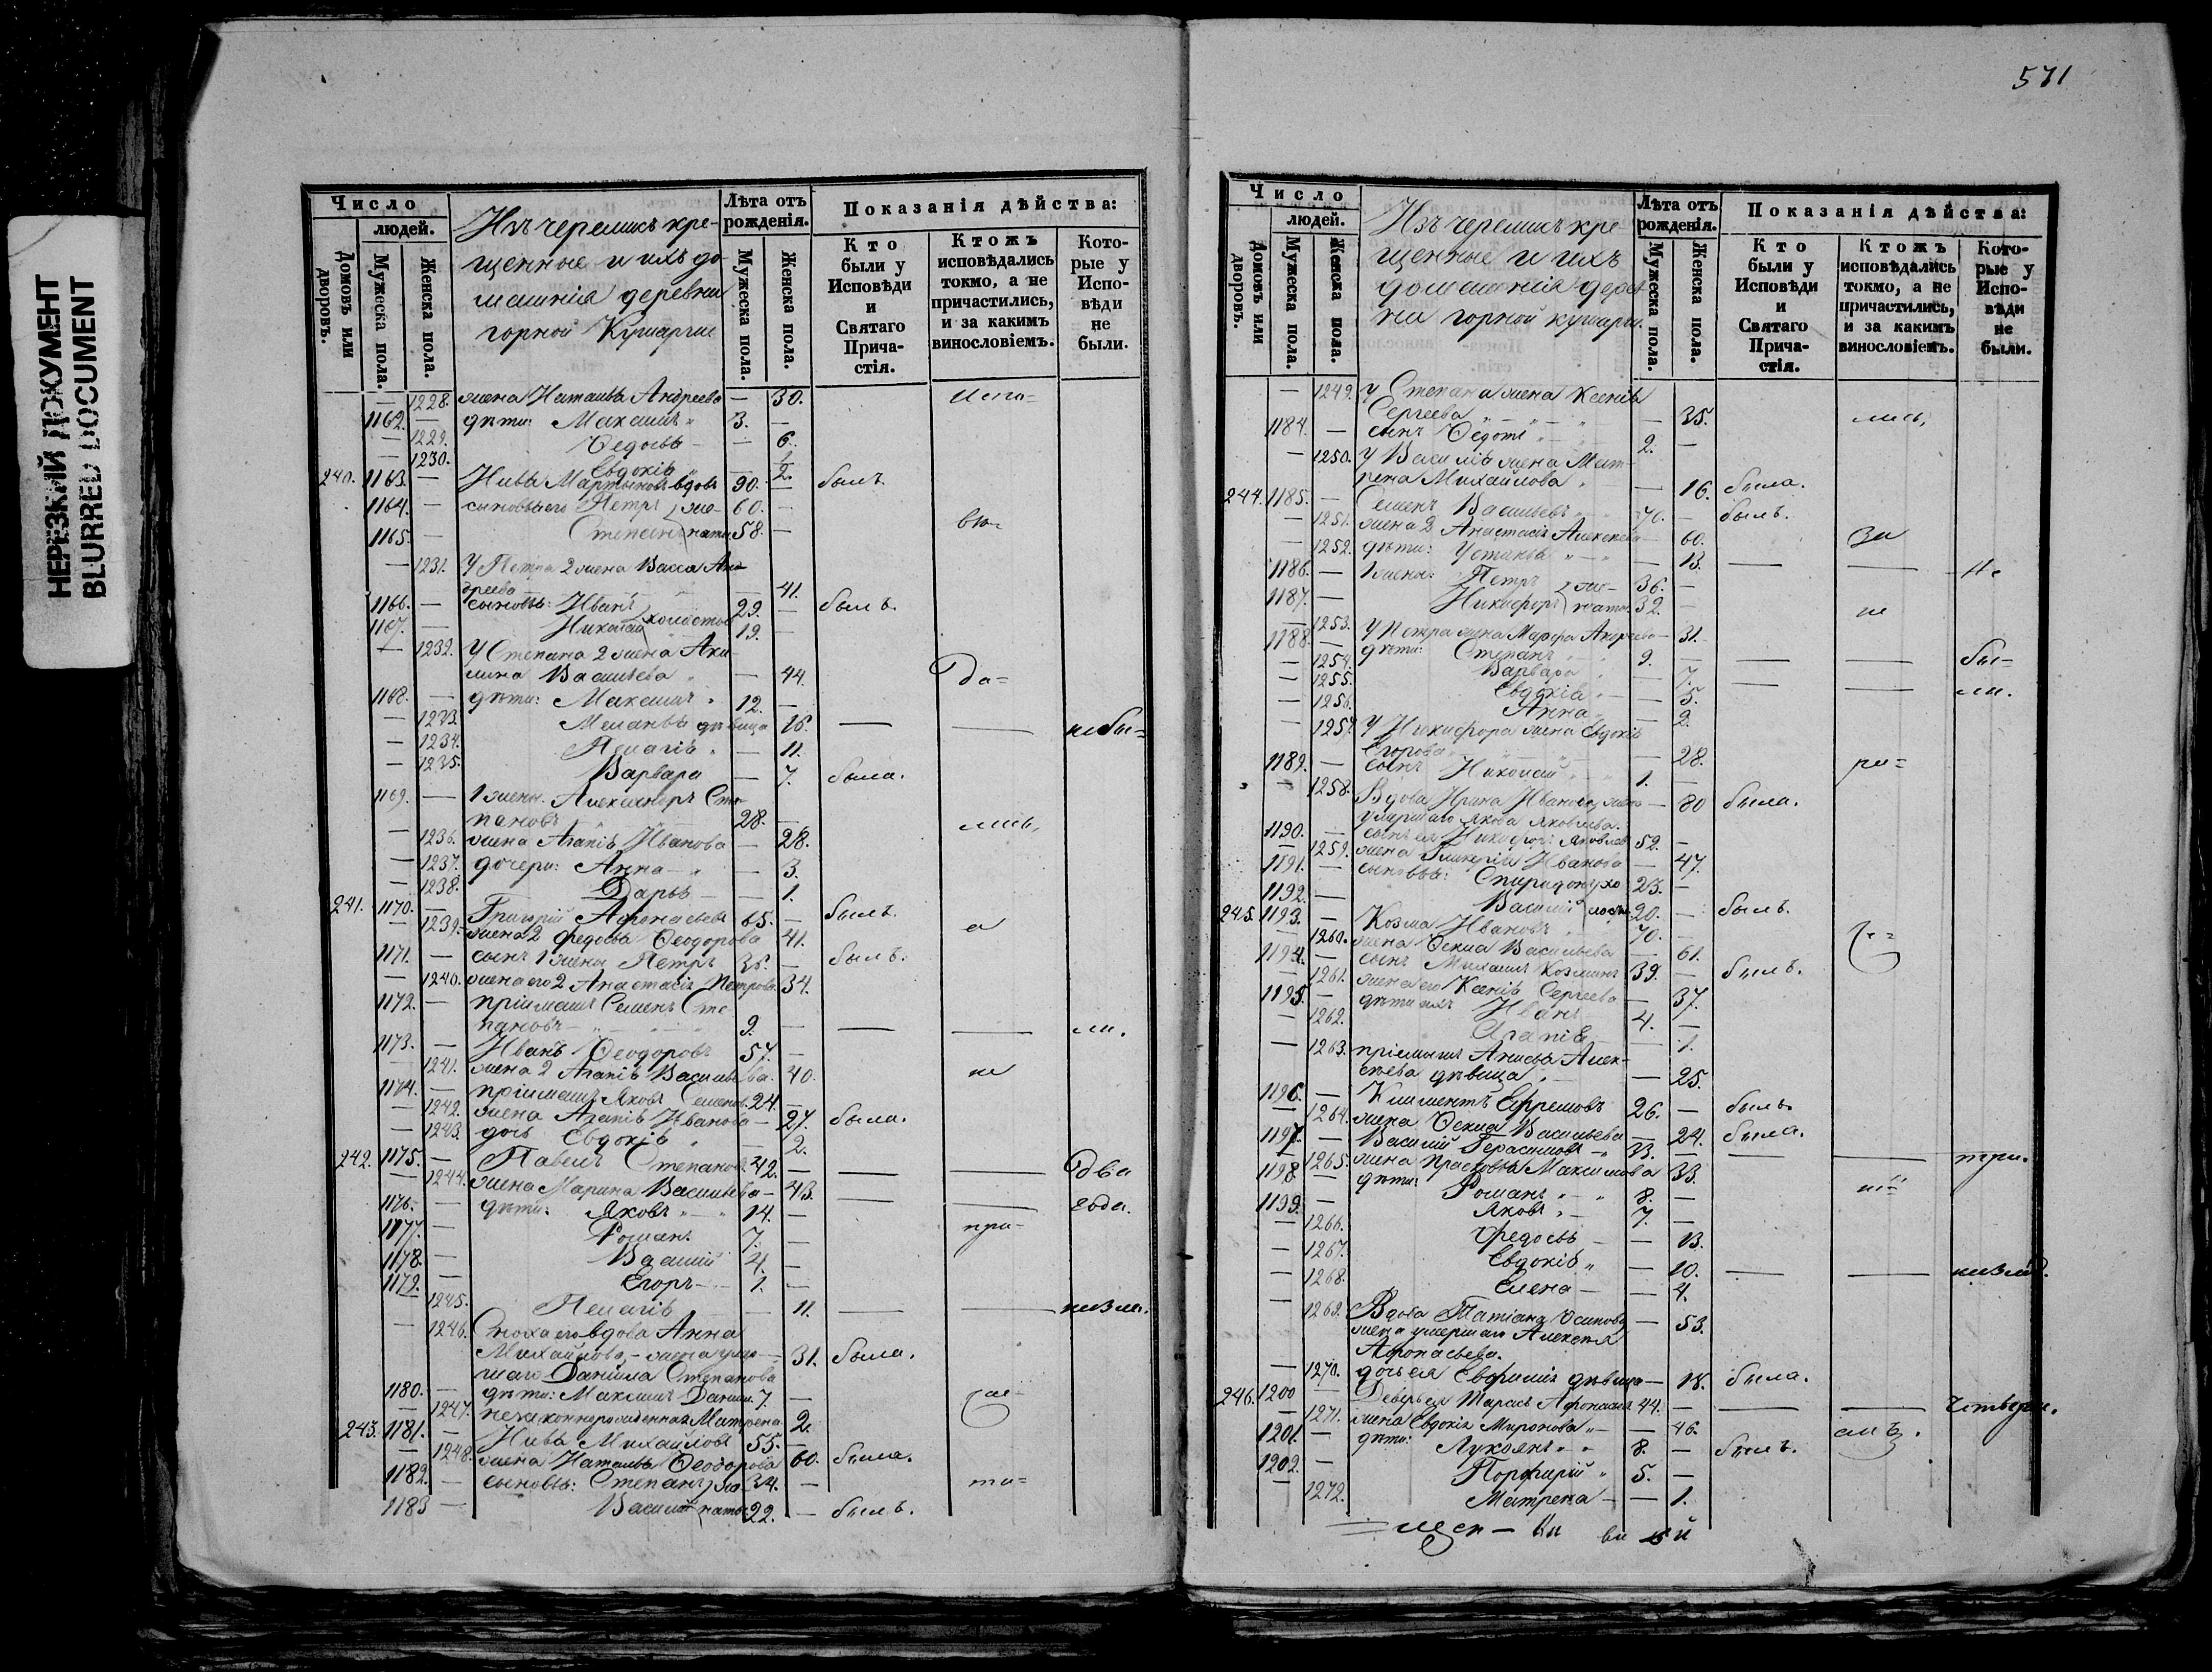 НЕРЕЗКИЙ ДОКУМЕНТ
BLURRED DOCUMENT
Число
людей.
Домовъ или дворовъ.
Мужеска пола.
Женска пола.
Изъ черемисъ кре-
щенные и ихъ до-
машнія деревни
горной Кушерги
Лѣта отъ рожденія.
Мужеска пола.
Женска пола.
Показанія дѣйства:
Кто были у Исповѣди и Святаго Прича-стія.
Ктожъ исповѣдались токмо, а не причастились, и за какимъ винословіемъ.
Кото-рые у Испо-вѣди не были.
— 1228. жена Наталья Андреева — 30. испо=
1162. — дѣти: Максимъ 3. —
— 1229. Ѳедосья — 6.
— 1230. Евдокія — 2.
240. 1163. — Мартыновъ вдовъ 90. — былъ.
1164. — сыновья его Петръ 60. —
1165. — Степанъ 58. — вѣ-
— 1231. У Петра 2 жена Васса Анд-
реева — 41.
1166. — сыновья: Иванъ 29. — былъ.
1167. — Николай холосты 19. —
— 1232. У Степана 2 жена Аки-
лина Васильева — 44. да=
1168. — дѣти: Максимъ 12. —
— 1233. Меланья дѣвица 16. — — небы=
— 1234. Пелагія — 11.
— 1235. Варвара — 7. была.
1169. — 1 жены. Александръ Сте-
пановъ 28. — лись,
— 1236. жена Агапія Иванова — 28.
— 1237. дочери: Анна — 3.
— 1238. Дарья — 1.
241. 1170. — Григорій Афонасьевъ 65. — былъ.
— 1239. жена 2 Федосья Ѳеодорова 41. а
1171. — сынъ 1 жены Петръ 35. — былъ.
— 1240. жена его 2 Анастасія Петрова. 34.
1172. — пріимышъ Семенъ Сте-
пановъ 9. — — — ли.
1173. — Иванъ Ѳеодоровъ 57. —
— 1241. жена 2 Агапія Васильева. 40. не
1174. — пріимышъ Яковъ Семенов. 24. —
— 1242. жена Агапія Иванова — 27. была.
— 1243. дочь Евдокія — 2.
242. 1175. — Павелъ Степановъ 42. — — — два
— 1244. жена Марина Васильева — 43. — — года.
1176. — дѣти: Яковъ 14. —
1177. — Романъ 7. — при-
1178. — Василій 4. —
1179. — Егоръ 1. —
— 1245. Пелагія — 11. — —
— 1246. Сноха его вдова Анна
Михайлова, — жена умер- 31. была.
шаго Даніила Степанова
1180. — дѣти: Максимъ Данил. 7. —
— 1247. незаконнорожденная Матрена 2.
243. 1181. — Михайловъ 55. —
— 1248. жена Наталья Ѳеодорова 60. была.
1182. — сыновья: Степанъ 34. — ти=
1183 — Василій женаты 22. — былъ.
571
Число
людей.
Домовъ или дворовъ.
Мужеска пола.
Женска пола.
Изъ черемисъ кре
щенные и ихъ
домашнія дерев
ни горной кушерги.
Лѣта отъ рожденія.
Мужеска пола.
Женска пола.
Показанія дѣйства:
Кто были у Исповѣди и Святаго Прича-стія.
Ктожъ исповѣдались токмо, а не причастились, и за какимъ винословіемъ.
Кото-рые у Испо-вѣди не были.
— 1249. У Степана жена Ксенія
Сергеева — 35. лись,
1184. — сынъ Ѳедотъ 2. —
— 1250. У Василія жена Мат-
рена Михайлова — 16. была.
244. 1185. — Семенъ Васильевъ 70. — былъ.
— 1251. жена 2 Анастасія Алексѣева 60.
— 1252. дѣти: Устинья — 13. за
1186. — 1 жены: Петръ 36. — — — Не
1187. — Никифоръ женаты 32. — не
— 1253. У Петра жена Марфа Андреева — 31.
1188. — дѣти: Степанъ 9. — — — бы=
— 1254. Варвара — 7. — — ли.
— 1255. Евдокія — 5.
— 1256. Анна — 2.
— 1257. У Никифора жена Евдокія
Егорова — 28.
1189. — сынъ Николай 1. — ра=
— 1258. Вдова Ирина Иванова, жена — 80 была.
умершаго Якова Яковлева.
1190. — сынъ ея Никифоръ Яковлев 52. —
— 1259. жена Гликерія Иванова — 47.
1191. — сыновья: Спиридонъ хо 23. —
1192. — Василій лосты 20. — былъ.
245. 1193. — Козма Ивановъ 70. —
— 1260. жена Ѳекла Васильева — 61.
1194. — сынъ Михаилъ Козминъ 39. — былъ.
— 1261. жена его Ксенія Сергеева — 37.
1195. — дѣти ихъ Иванъ 4. —
— 1262. Агапія — 1.
— 1263. пріемышъ Анисья Алек-
сѣева дѣвица — 25.
1196. — Климентъ Ефремовъ 26. — былъ.
— 1264. жена Ѳекла Васильева — 24. была.
1197. — Василій Герасимовъ 33. — — — три.
— 1265. жена Прасковья Максимова 33.
1198. — дѣти: Романъ 8. —
1199. — Яковъ 7. —
— 1266. Федосья — 13.
— 1267. Евдокія — 10. — —
— 1268. Елена — 4.
— 1269. Вдова Татіана Осипова — 53.
жена умершаго Алексѣя
Афонасьева.
— 1270. дочь ея Евфимія дѣвица — 18. была.
246. 1200 — Деверь ея Тарасъ Афонасьев 44. — — —
— 1271. жена Евдокія Миронова — 46.
1201. — дѣти: Лукоянъ 8. — былъ.
1202. — Порфирій 5. —
— 1272. Матрена — 1.